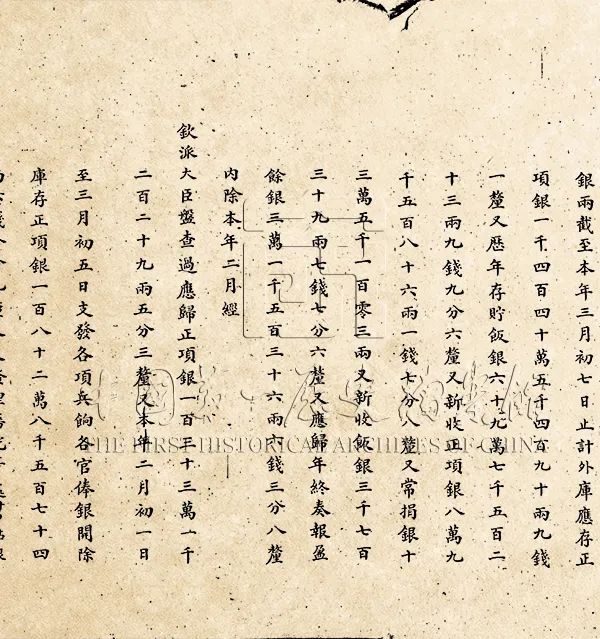 銀兩截至本年三月初七日止計外庫應存正
項銀一千四百四十萬五千四百九十兩九錢
一釐又歷年存貯飯銀六十九萬七千五百二
十三兩九錢九分六釐又新收正項銀八萬九
千五百八十六兩一錢七分八釐又常捐銀十
三萬五千一百零三兩又新收飯銀三千七百
三十九兩七錢七分六釐又應歸年終奏報盈
餘銀三萬一千五百三十六兩六錢三分八釐
內除本年二月經
欽派大臣盤查過應歸正項銀一百三十三萬一千
二百二十九兩五分三釐又本年二月初一日
至三月初五日支發各項兵餉各官俸銀開除
庫存正項銀一百八十二萬八千五百七十四
中國第一歷史檔案館
THE FIRST HISTORICAL ARCHIVES OF CHINA